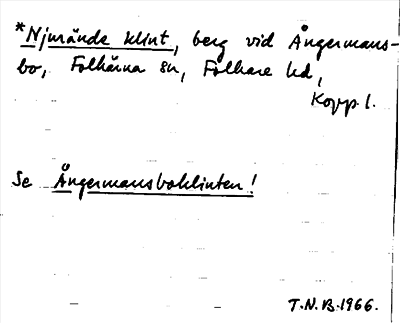 *Njurände klint, berg vid Ångermans-
bo, Folkärna sn, Folkare hd,
Kopp. l.
Se Ångermansboklinten!
T.N.B. 1966.